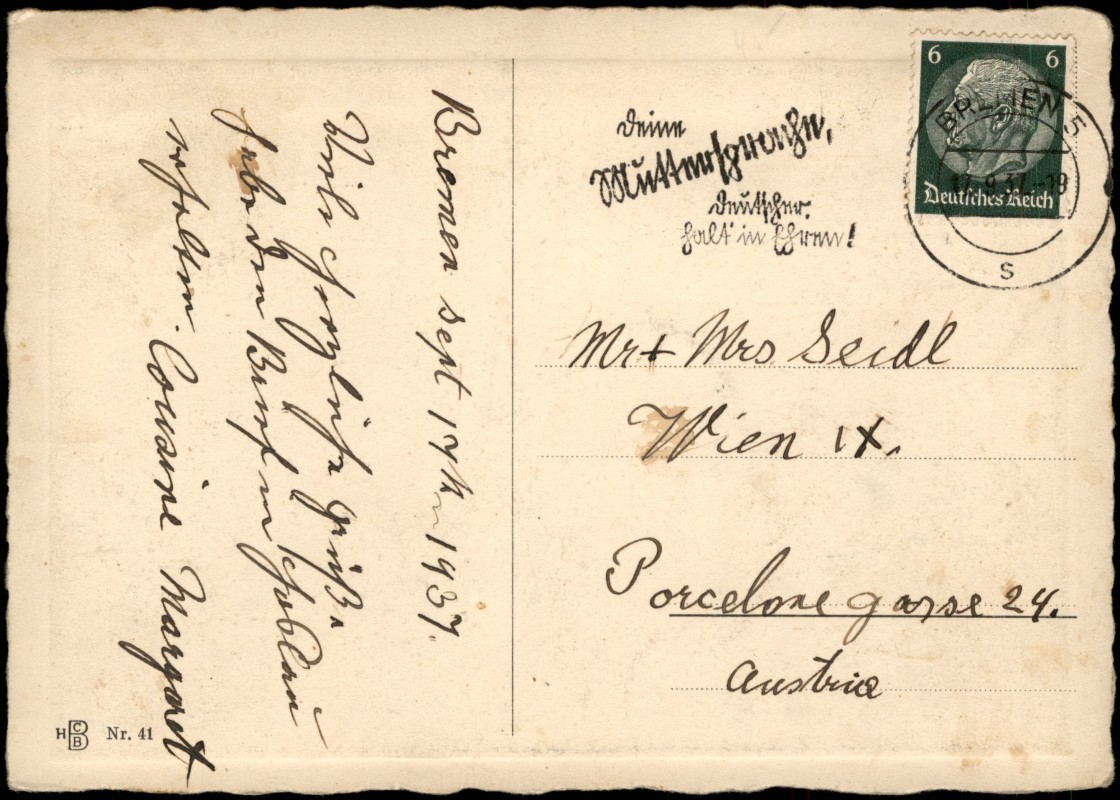 Bremen Sept 17th 1937.
Viele herzliche Grüße
habe den Brief in
erhalten. Cousine Margaret
Deine
Muttersprache,
Deutscher,
halt' in Ehren!
6 6
Deutsches Reich
BREMEN 5
17.9.37.-19
S
Mr + Mrs Seidl
Wien IX.
Porcelone gasse 24.
Austria
HCB Nr. 41